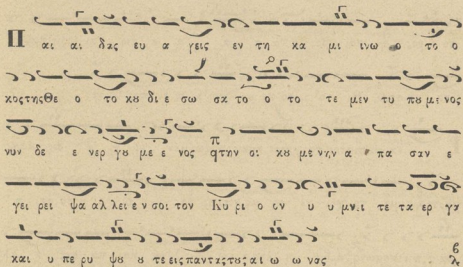 Π αι αι δας ευ α γεις εν τη κα μι ινω ο το ο
κοςτηςΘε ο το κȣ διε σω σα το ο το τε μεν τυ πȣ με νος
νυν δε ε νερ γȣ με ε νος την οι κȣ με νην α πα σαν ε
γει ρει ψα αλ λει ε ν σοι τον Κυ ρι ο ον υ υ μνει τε τα ερ γα
και υ πε ρυ ψȣ ȣ τε εις παντας τȣς αι ω ω νας